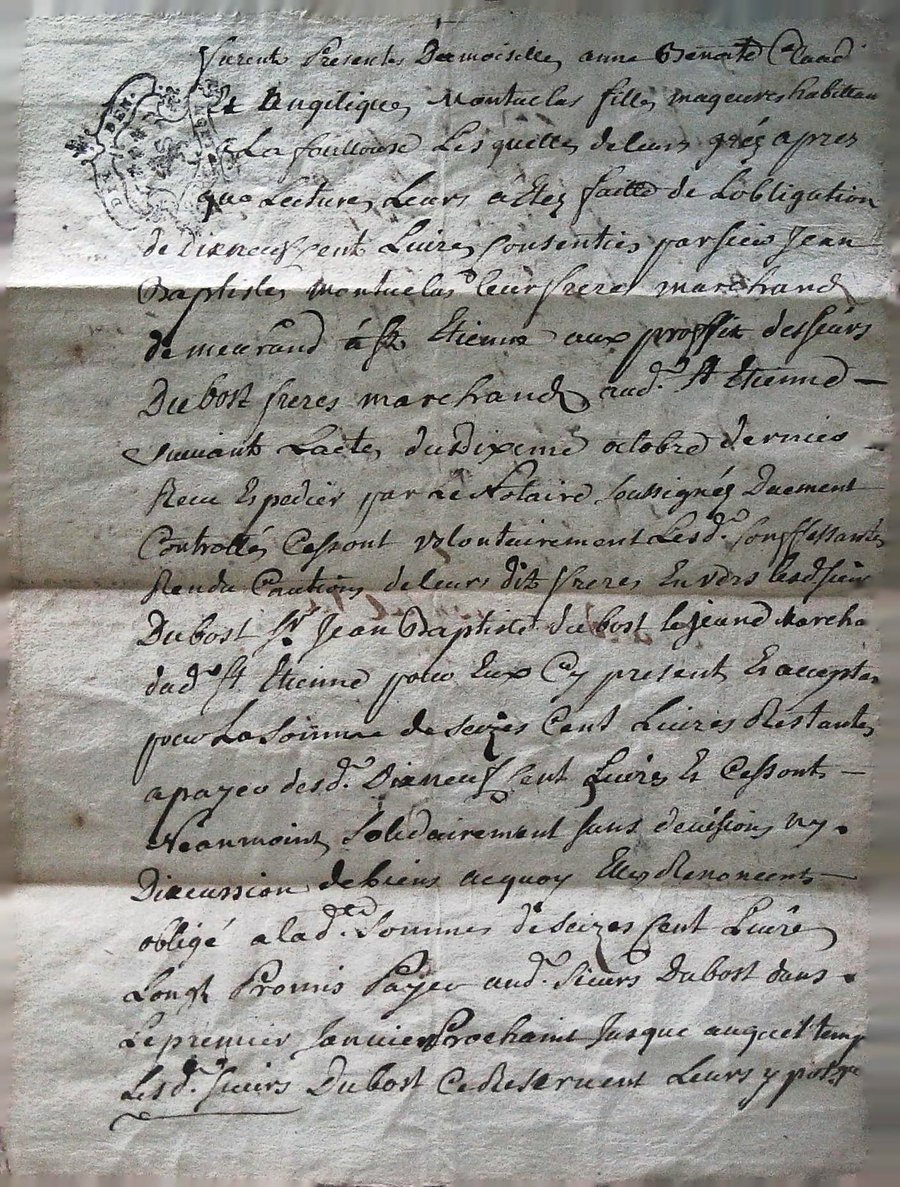 furent Presentes Demoiselles anne Benoite Claud
Et Angelique Montuclas filles mageures habittan
a La fouillouse Lesquelles deleurs gréz apres
que Lecture Leurs a Etez faitte de Lobligation
de Dixneuf cent Livres Consenties par sieur Jean
Baptiste montuclas leur frere marchand
demeurand a st Etienne aux proffit des sieurs
Dubost freres marchands aud. st Etienne —
suivant Lacte du Dixeme octobre dernier
Receu Expedier par Le Notaire soussignéz Duement
Controllée Cessont volontairement Lesd.
Rendu Cautions deleurs dit frere Envers lesd sieur
Dubost sr. Jean Baptiste dubost le jeune Marcha
dud. st Etienne pour Eux Cy present Et acceptan
pour La Somme de seizes Cent Livres Restantes
a payer desd. Dixneuf cent Livres Et Cessont —
Neanmoins Solidairement sans devision ny
Discussion de biens acquoy Elles Renoncent
obligé a lad. Somme de seizes Cent Livre
Lonst Promis Payer aud. sieurs Dubost dans
Le premier Janvier Prochaint Jusque auquel temp
Lesd. sieurs Dubost Ce Reservent Leurs ypot.re